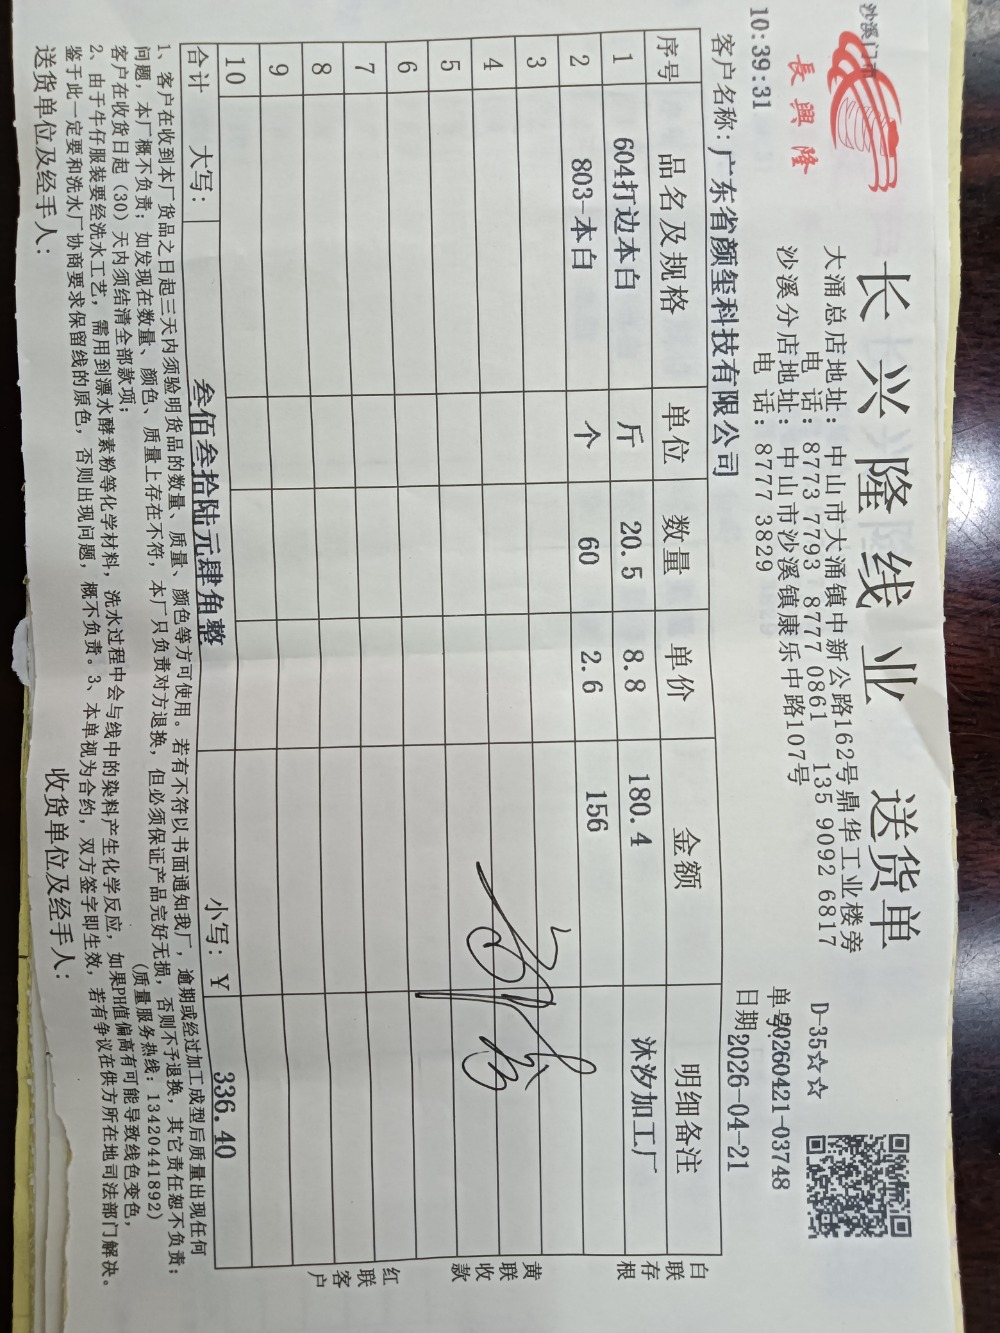 沙溪门市
10:39:31
長興隆
长兴隆线业 送货单
大涌总店地址：中山市大涌镇中新公路162号鼎华工业楼旁
电 话：8773 7793 8777 0861 135 9092 6817
沙溪分店地址：中山市沙溪镇康乐中路107号
电 话：8777 3829
D-35☆☆
单号:20260421-03748
日期:2026-04-21
客户名称：广东省颜玺科技有限公司
序号 品名及规格 单位 数量 单价 金额 明细备注
1 604打边本白 斤 20.5 8.8 180.4 沐汐加工厂
2 803-本白 个 60 2.6 156
3
4
5
6
7
8
9
10
合计 大写： 叁佰叁拾陆元肆角整 小写：￥ 336.40
白联存根
黄联收款
红联客户
1、客户在收到本厂货品之日起三天内须验明货品的数量、质量、颜色等方可使用。若有不符以书面通知我厂，逾期或经过加工成型后质量出现任何
问题，本厂概不负责；如发现在数量、颜色、质量上存在不符，本厂只负责对方退换，但必须保证产品完好无损，否则不予退换，其它责任恕不负责；
客户在收货日起（30）天内须结清全部款项； (质量服务热线：13420441892)
2、由于牛仔服装要经洗水工艺，需用到漂水酵素粉等化学材料，洗水过程中会与线中的染料产生化学反应，如果PH值偏高有可能导致线色变色，
鉴于此一定要和洗水厂协商要求保留线的原色，否则出现问题，概不负责。3、本单视为合约，双方签字即生效，若有争议在供方所在地司法部门解决。
送货单位及经手人： 收货单位及经手人：